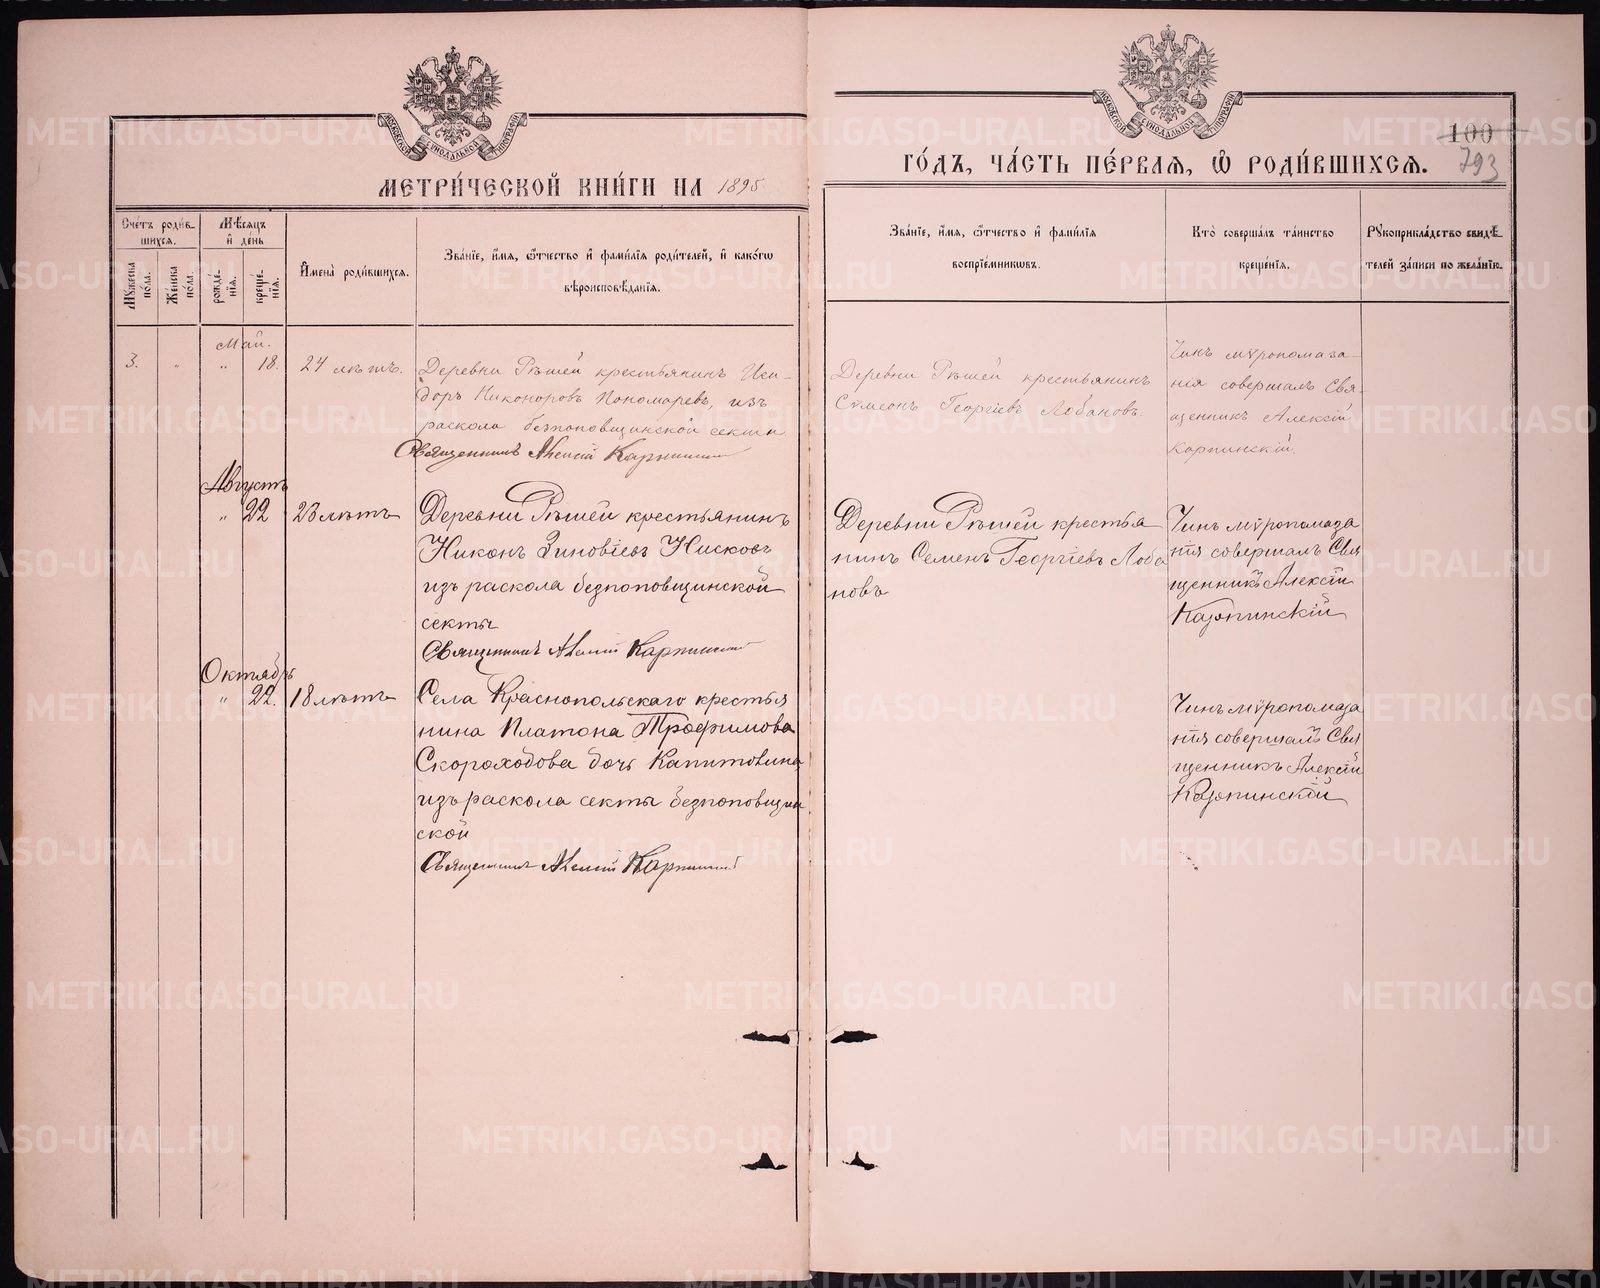 МЕТРИ́ЧЕСКОЙ КНИ́ГИ НА 1895
ГО́ДЪ, ЧА́СТЬ ПЕ́РВАЯ, Ѿ РОДИ́ВШИХСЯ.
100
793
МОСКОВСКОЙ СУНОДАЛЬНОЙ ТИПОГРАФІИ
МОСКОВСКОЙ СУНОДАЛЬНОЙ ТИПОГРАФІИ
Сче́тъ роди́в-
шихся.
Му́жеска по́ла.
Же́нска по́ла.
Мѣ́сяцъ
и҆ де́нь
рожде́-
нія.
креще́-
нія.
И҆мена̀ роди́вшихся.
Зва́ніе, и҆́мя, ѻ҆́тчество и҆ фами́лія роди́телей, и҆ како́гѡ
вѣроисповѣ́данія.
Зва́ніе, и҆́мя, ѻ҆́тчество и҆ фами́лія
воспріе́мникѡвъ.
Кто̀ соверша́лъ та́инство
креще́нія.
Рꙋкоприкла́дство свидѣ́-
телей за́писи по жела́нію.
Май.
3. " " 18. 24 лѣтъ.
Деревни Рѣшей крестьянинъ Иси-
доръ Никоноровъ Пономаревъ, изъ
раскола безпоповщинской секты
Священникъ Алексій Карпинскій
Деревни Рѣшей крестьянинъ
Сѵмеонъ Георгіевъ Лобановъ.
Чинъ мѵропомаза-
нія совершалъ Свя-
щенникъ Алексій
Карпинскій.
Августъ
" 22 23 лѣтъ
Деревни Рѣшей крестьянинъ
Никонъ Зиновіевъ Нисковъ
изъ раскола безпоповщинской
секты
Священникъ Алексій Карпинскій
Деревни Рѣшей крестья
нинъ Семенъ Георгіевъ Лоба
новъ
Чинъ мѵропомаза
нія совершалъ Свя
щенникъ Алексій
Карпинскій
Октябрь
" 22. 18 лѣтъ
Села Краснопольскаго крестья
нина Платона Трофимова
Скороходова дочь Капитолина
изъ раскола секты безпоповщин
ской
Священникъ Алексій Карпинскій
Чинъ мѵропомаза
нія совершалъ Свя
щенникъ Алексій
Карпинскій
METRIKI.GASO-URAL.RU